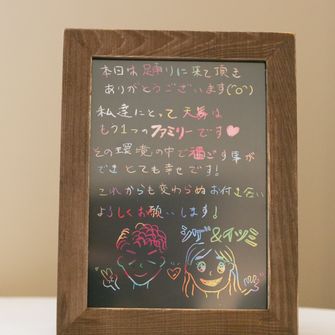 本日は踊りに来て頂き
ありがとうございます(^o^)
私達にとって天馬は
もう1つのファミリーです♥
その環境の中で過ごす事が
でき とても幸せです!
これからも変わらぬお付き合い
よろしくお願いします!
シゲ&イツミ